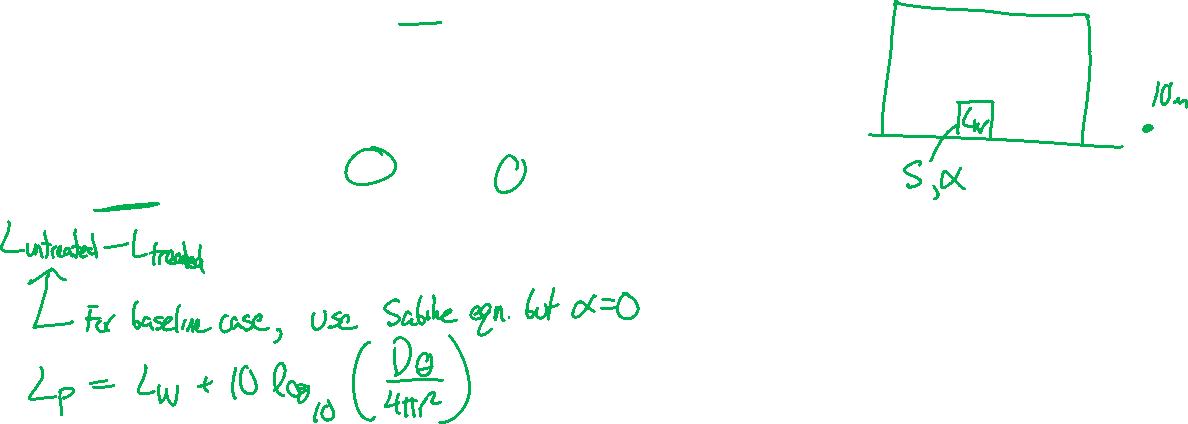 10m
Lw
S, α
Luntreated - Ltreated
For baseline case, use Sabine eqn. but α=0
Lp = Lw + 10 log10 (Dθ / 4πr²)